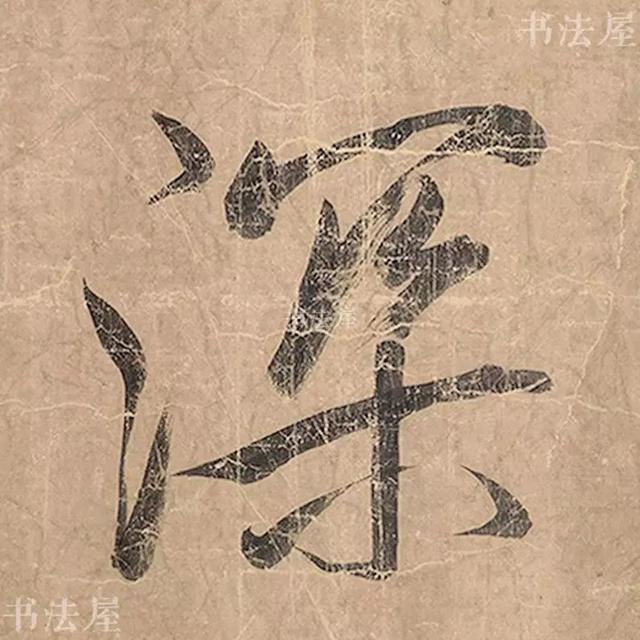 书法屋
深
书法屋
书法屋